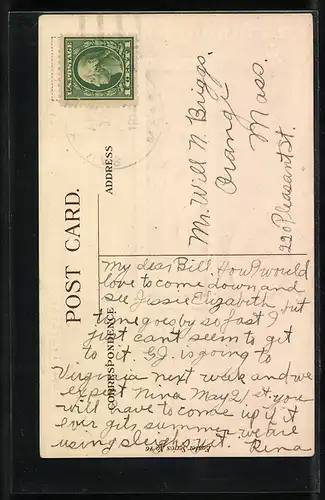 U.S. POSTAGE
1 CENT 1
POST CARD.
CORRESPONDENCE
ADDRESS
Mr. Will N. Briggs.
Orange
Mass.
220 Pleasant St.
My dear Bill, How I would
love to come down and
see Jessie Elizabeth but
time goes by so fast I
just can't seem to get
to it. G.J. is going to
Virginia next week and we
expect Nina May 21st. you
will have to come up if it
ever gets summer. we are
using sleighs yet. Rena
Easter Series No.